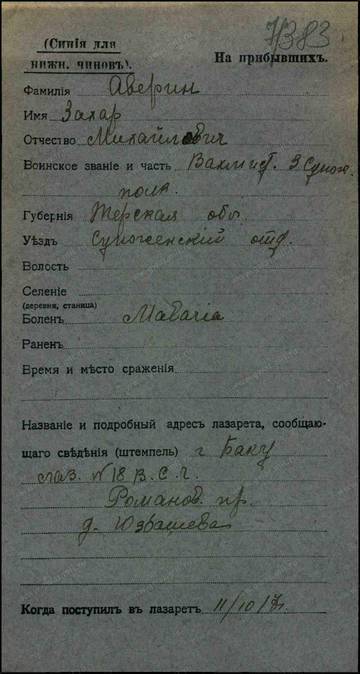 7/383
(Синія для
нижн. чиновъ).
На прибывшихъ.
Фамилія Аверин
Имя Захар
Отчество Михайлович
Воинское званіе и часть Вахмист. 3 Сунж.
полк.
Губернія Терская обл
Уѣздъ Сунженский отд.
Волость
Селеніе
(деревня, станица)
Боленъ Малагіа
Раненъ
Время и мѣсто сраженія
Названіе и подробный адресъ лазарета, сообщаю-
щаго свѣдѣнія (штемпель) г Баку
лаз. N 18 В. С. Г.
Романов. пр.
д. Юзбашева
Когда поступилъ въ лазаретъ 11/10/